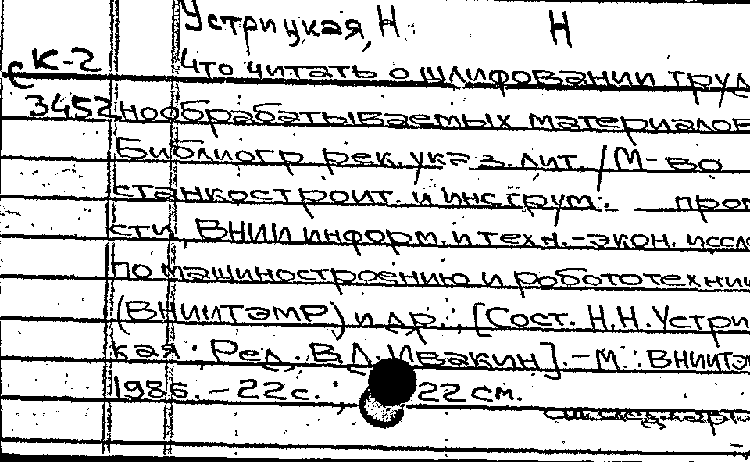 Устрицкая, Н. Н
С К-2 Что читать о шлифовании труд
3452 нообрабатываемых материалов
Библиогр. рек. указ. лит. / М-во
станкостроит. и инструм. пром
сти, ВНИИ информ. и техн.-экон. иссле
по машиностроению и робототехни
(ВНИИТЭМР) и др.; [Сост. Н.Н. Устри
кая; Ред. В.Л. Ивакин]. - М.: ВНИИТЭ
1986. - 22 с.; 22 см.
См. след. карт